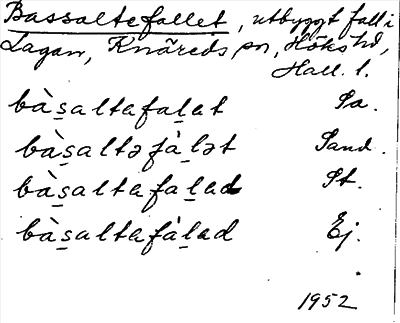 Bassaltefallet, utbyggt fall i
Lagan, Knäreds sn, Höks hd,
Hall. l.
bàs̱altafaḻat Sa.
bàs̱altəfàḻət Sand.
bàs̱altafaḻad St.
bàs̱altafàḻad Ej.
1952